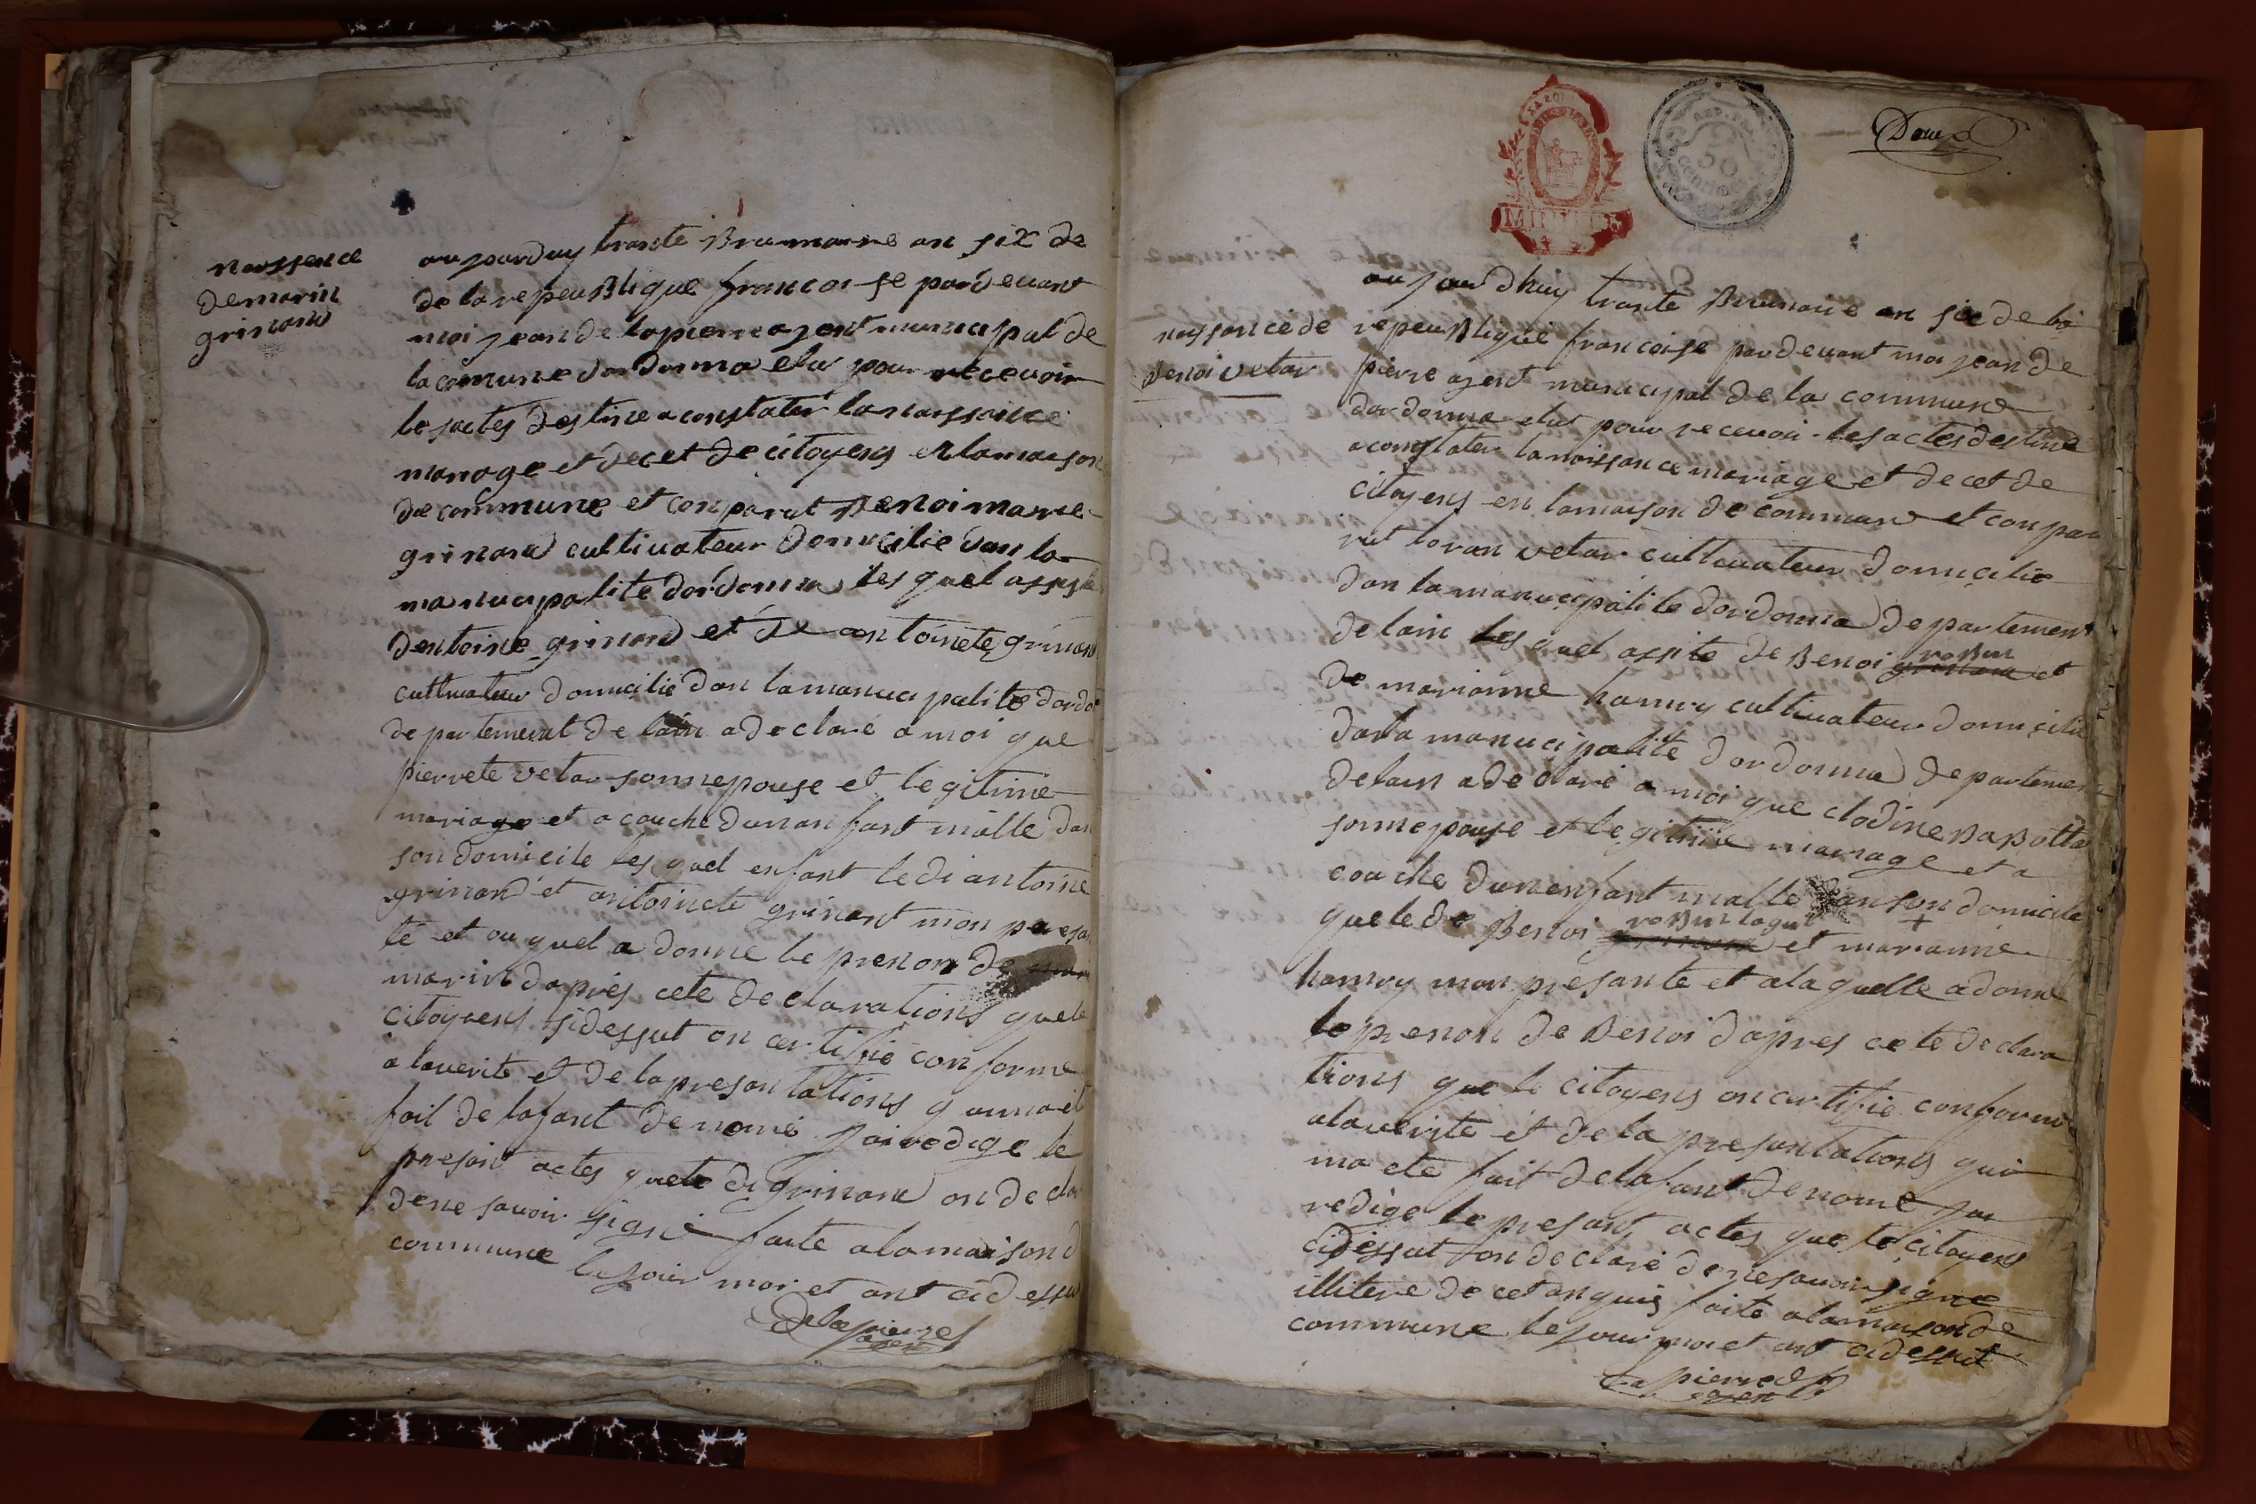 naissence
de marin
grinand
aujourduy trante Brumaire an six de
de la repeublique francoise pardevant
moi jean de lapierre agent municipal de
la comune dordonna elu pour recevoir
les actes destine a constater la naissance
mariage et decet de citoyens en la maison
de commune et conparut Benoi marie
grinand cultivateur domicilie dan la
manucipalite dordonna les quel assiste
dentoine grinand et de antoinete grinand
cultivateur domicilie dan la manucipalite dordo
departement de lain a declare a moi que
pierrete vetar sonnepouse et legitime
mariage et a couche dunanfant malle dan
son domicile les quel enfant ledi antoine
grinand et antoinete grinant mon presan
te et au quel a donne le prenon de
marin dapres cete declarations que le
citoyens sidessut on certifie conforme
a laverite et de la presantations quima et
fait de lafant denome jai redige le
presant actes que le di grinand on declar
dene savoir signe faite a la maison d
commune le jour moi et ant cidessu
Delapierre
agent
Doux
50
centimes
aujourdhuy trante Brumaire an sie de la
naissance de
Benoi vetar
repeublique francoise pardevant moi jean de
pierre agent municipal de la commune
dordonna elut pour recevoir les actes destine
a constater la naissance mariage et decet de
citoyens en la maison de commune et conpa
rut loran vetar cultivateur domicilie
dan la manucipalite dordonna departement
de lain les quel assite de Benoi roBin et
de marianne hanvoy cultivateur domicilie
dan la manucipalite dordonna departement
delain a declaré a moi que clodine BaBolta
sonnepouse et legitime mariage et a
couche dunenfant malle dan son domicile
que le di Benoi roBin laqu et marianne
hanvoy mon presante et a laquelle a donne
le prenon de Benoi dapres cete declara
tions que le citoyens on certifie conforme
a laverite et de la presantations qui
ma ete fait de lafant denome jai
redige le presant actes que le citoyens
cidessut on declare de nesavoir signe
illitere de cet anquis faite a la maison de
commune le jour moi et ant cidessut
La pierre
agent